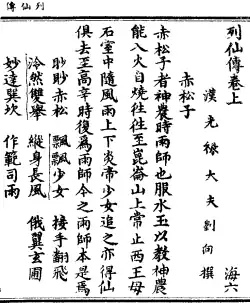 列仙傳
列仙傳卷上 海六
漢光祿大夫劉向撰
赤松子
赤松子者神農時雨師也服水玉以教神農
能入火自燒往往至崑崙山上常止西王母
石室中隨風雨上下炎帝少女追之亦得仙
俱去至高辛時復為雨師今之雨師本是焉
眇眇赤松 飄飄少女 接手翻飛
泠然雙舉 縱身長風 俄翼玄圃
妙達巽坎 作範司雨